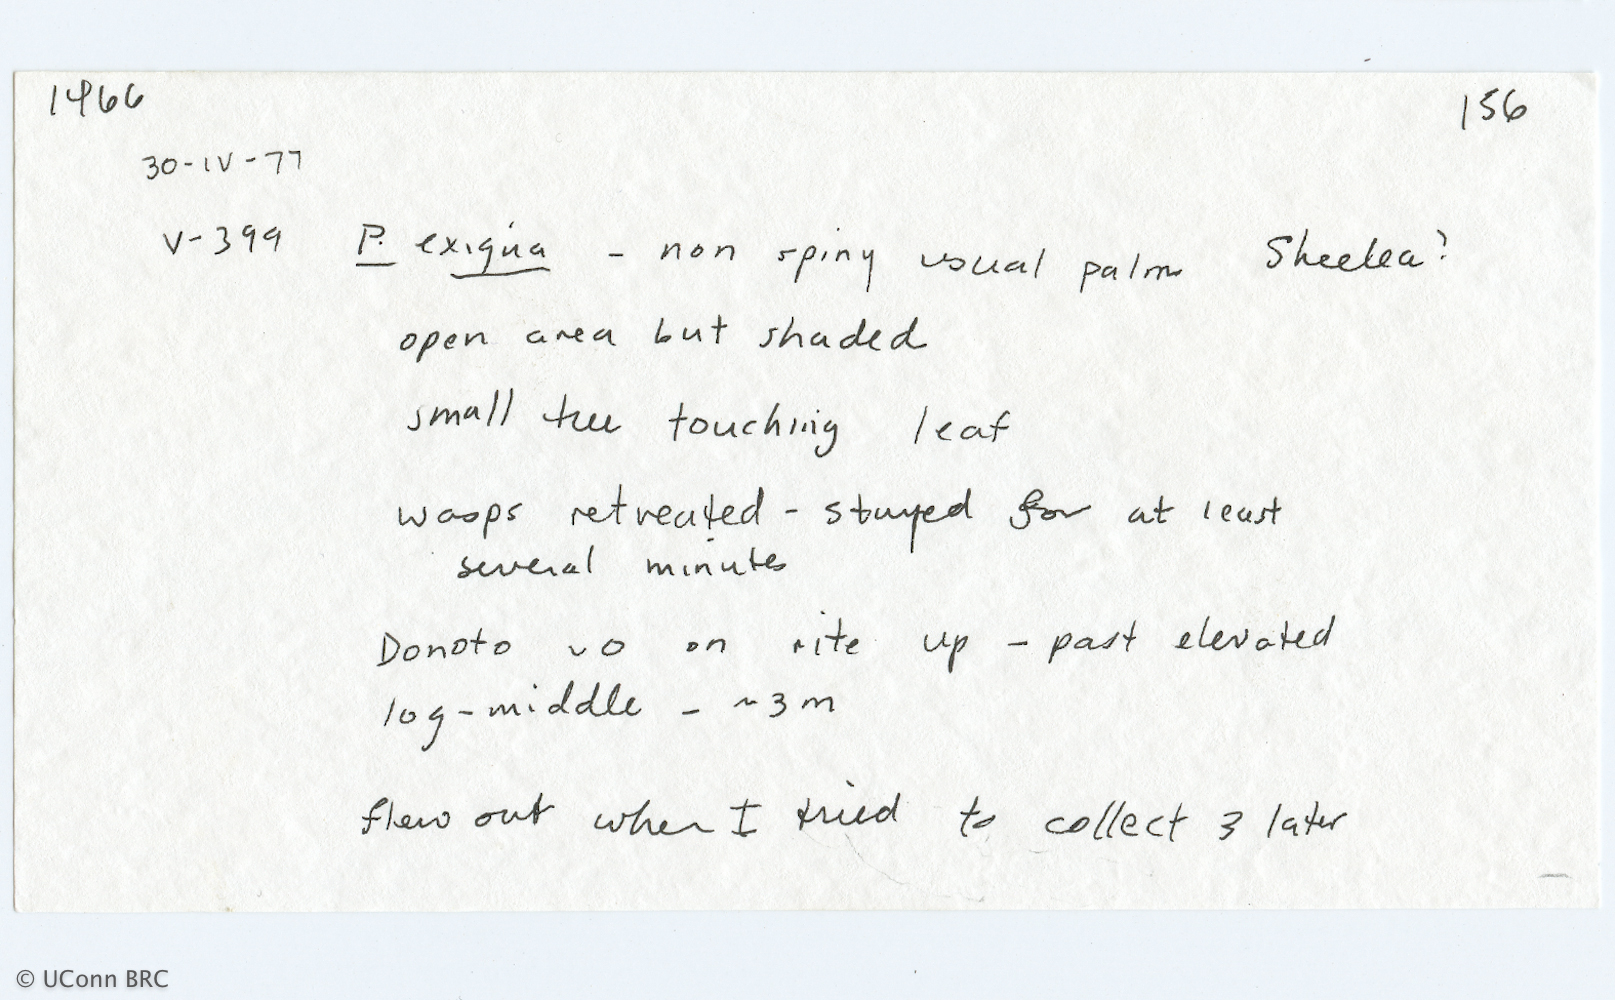 1466
156
30-IV-77
V-399 P. exigua - non spiny usual palm Sheelea?
open area but shaded
small tree touching leaf
wasps retreated - stayed for at least
several minutes
Donoto on rite up - past elevated
log-middle - ~3m
flew out when I tried to collect 3 later
© UConn BRC